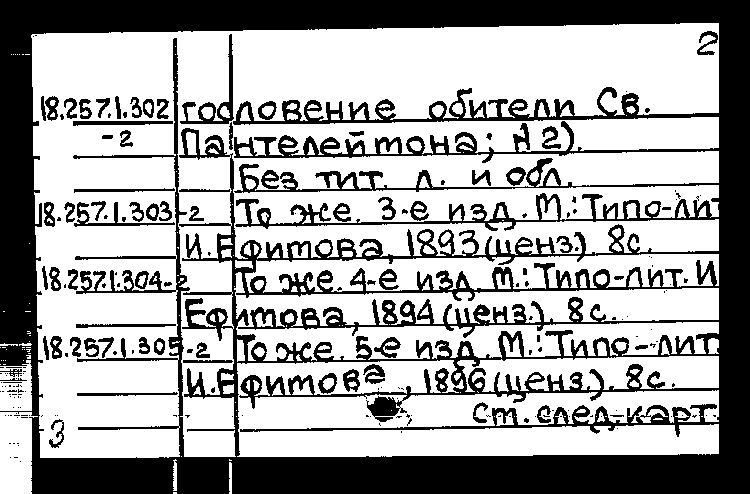 2
18.257.1.302 гословение обители Св.
-2 Пантелеймона; № 2).
Без тит. л. и обл.
18.257.1.303-2 То же. 3-е изд. М.: Типо-лит
И. Ефимова, 1893 (ценз.). 8с.
18.257.1.304-2 То же. 4-е изд. М.: Типо-лит. И
Ефимова, 1894 (ценз.). 8с.
18.257.1.305-2 То же. 5-е изд. М.: Типо-лит.
И. Ефимова, 1896 (ценз.). 8с.
ст. след. карт.
3